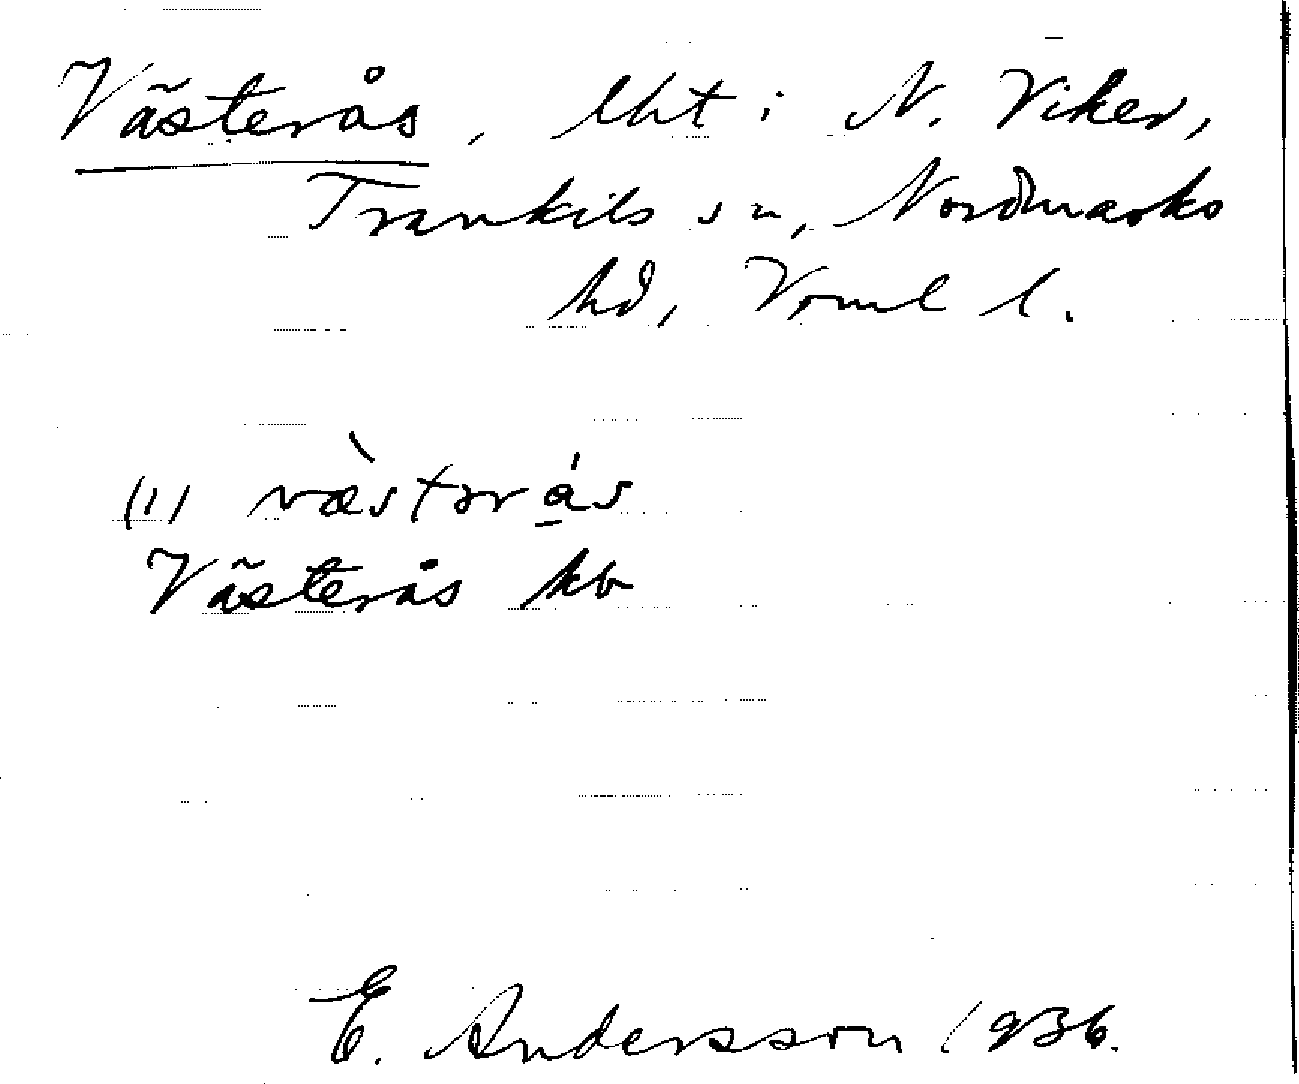 Västerås, lht i N. Viker,
Trankils sn, Nordmarks
hd, Vrml l.
(1) væ̀stər ǻs
Västerås kb
E. Andersson 1936.